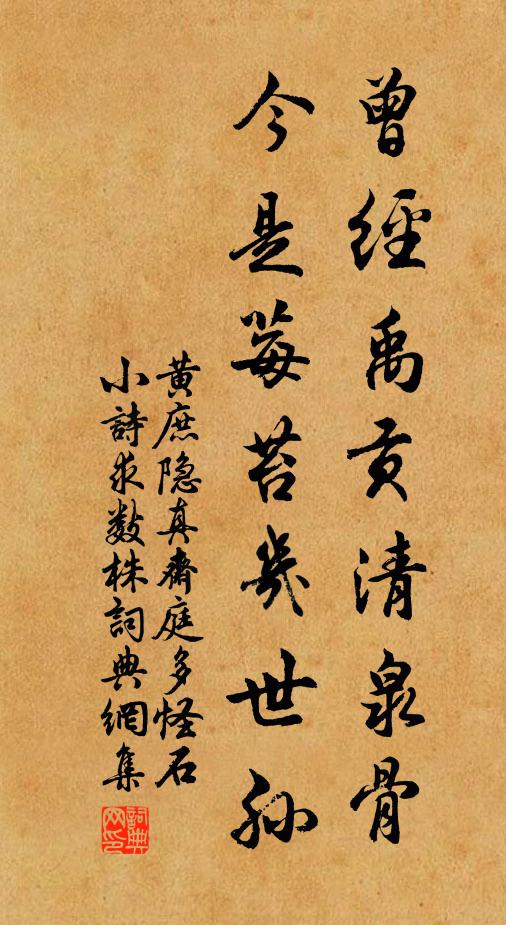 曾經禹貢清泉骨
今是莓苔幾世孙
黄庶隐真齋庭多怪石
小詩求数株詞典網集
詞典网印